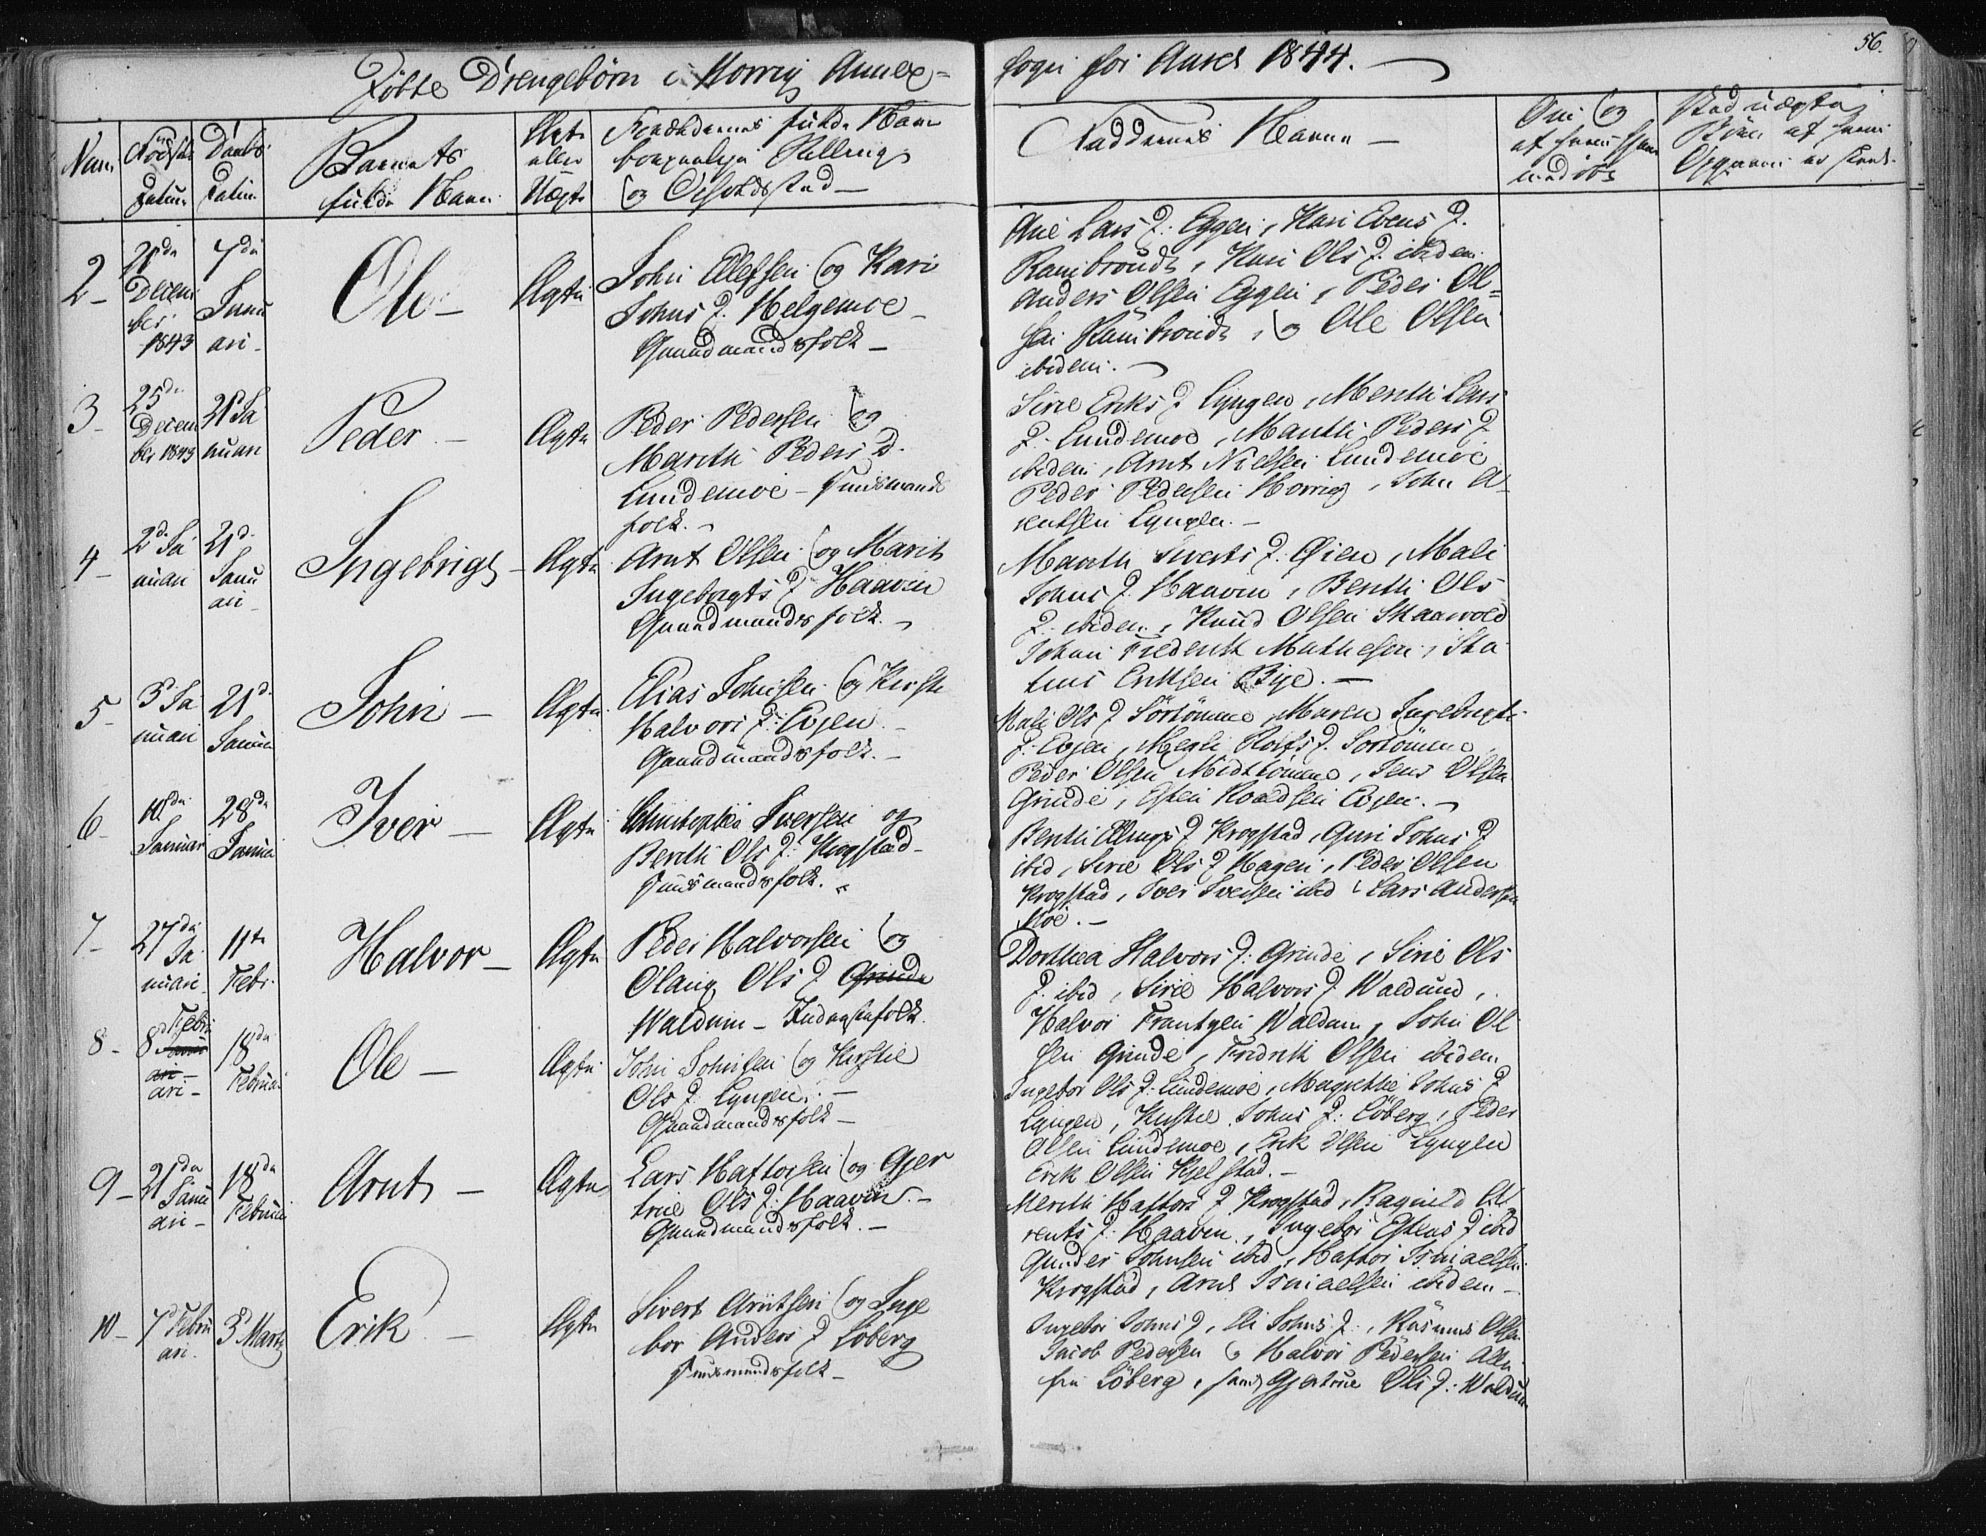 56.
Døbte Drengebørn i Horrig Annex=
sogn for Aaret 1844.
Num
Fødsels
Datum
Daabs
Datum
Barnets
fulde Navn
Ægte
eller
Uægte
Forældrenes fulde Navn
borgerlige Stilling
og Opholdsstad
Faddernes Navne
Om og
af hvem hjem
medøbt
Ved uægte
Børn af hvem
Opgaven er skeet
2
28de
Decem
ber
1843
7de
Janu
ari
Ole
Ægte
John Ellefsen og Kari
Johns D. Helgemoe
Gaardmandsfolk
Ane Lars D: Eggen, Kari Evens D.
Rambraudt, Kari Ols D. ibidem
Anders Olsen Eggen, Peder Ol=
sen Rambraudt, og Ole Olsen
ibidem.
3
25de
Decem
ber 1843
21d Ja
nuari
Peder
Ægte
Peder Pedersen og
Marith Peders D.
Lundemoe - Huusmands
folk.
Sirie Eriks D Lyngen, Merithe Lars
D. Lundemoe, Marithe Peders D
ibidem, Arnt Nielsen Lundemoe
Peder Pedersen Horrig, John A-
rentsen Lyngen.
4
2d Ja
nuari
21d
Janu
ari
Ingebrigt
Ægte
Arnt Olsen og Marit
Ingebrigts D Haaven
Gaardmandsfolk.
Marith Siverts D. Øien, Mali
Johns D. Haaven, Berithe Ols
D: ibidem, Knud Olsen Skaarvold
Johan Frederik Mathesen, Sta
tius Eriksen Bye.
5
3d Ja
nuari
21d
Januar
John
Ægte
Elias Johnsen og Kirsti
Halvors D: Evjen
Gaardmandsfolk.
Mali Ols D Sørtømme, Maren Ingebrigts
D. Evjen, Merli Rolfs D. Sørtømme
Peder Olsen Midttømme, Jens Olsen
Grinde, Esten Roaldsen Evjen.
6
10de
Januar
28de
Januar
Iver
Ægte
Christopher Iversen og
Berith Ols D: Krogstad
Huusmandsfolk.
Berith Ellings D Krogstad, Guri Johns D
ibid, Sirie Ols D Hagen, Peder Olsen
Krogstad, Iver Iversen ibid, Lars Andersen
Moe.
7
27de
Ja
nuari
11te
Febr.
Halvor
Ægte
Peder Halvorsen og
Olaug Ols D Grinde
Waldum - Inderstefolk.
Dorthea Halvors D: Grinde, Sirie Ols
D. ibid, Sirie Halvors D Waldum,
Halvor Frantzen Waldum, John Ol
sen Grinde, Fredrik Olsen ibidem
8
8d Febru
ari
18de
Februar
Ole
Ægte
John Johnsen og Kirstie
Ols D. Lyngen
Gaardmandsfolk
Ingebor Ols D: Lundemoe, Magrethe Johns D
Lyngen, Kirstie Johns D: Løberg, Peder
Olsen Lundemoe, Erik Olsen Lyngen
Erik Olsen Kjelstad.
9
21de
Janu
ari
18de
Februar
Arnt
Ægte
Lars Haftorsen og Gjer
true Ols D: Haaven
Gaardmandsfolk.
Merith Haftors D Krogstad, Ragnild A
rents D. Haaven, Ingebor Estens D ibid
Gunder Johnsen ibid, Haftor Ismaelsen
Krogstad, Arnt Ismaelsen ibidem
10
7d Febru
ari
3d Marts
Erik
Ægte
Sivert Arntsen og Inge
bor Anders D Løberg
Huusmandsfolk
Ingebor Johns D, Eli Johns D., Rasmus Olsen
Jacob Pedersen og Halvor Pedersen Alle
fra Løberg, samt Gjertrue Ols D: Waldum